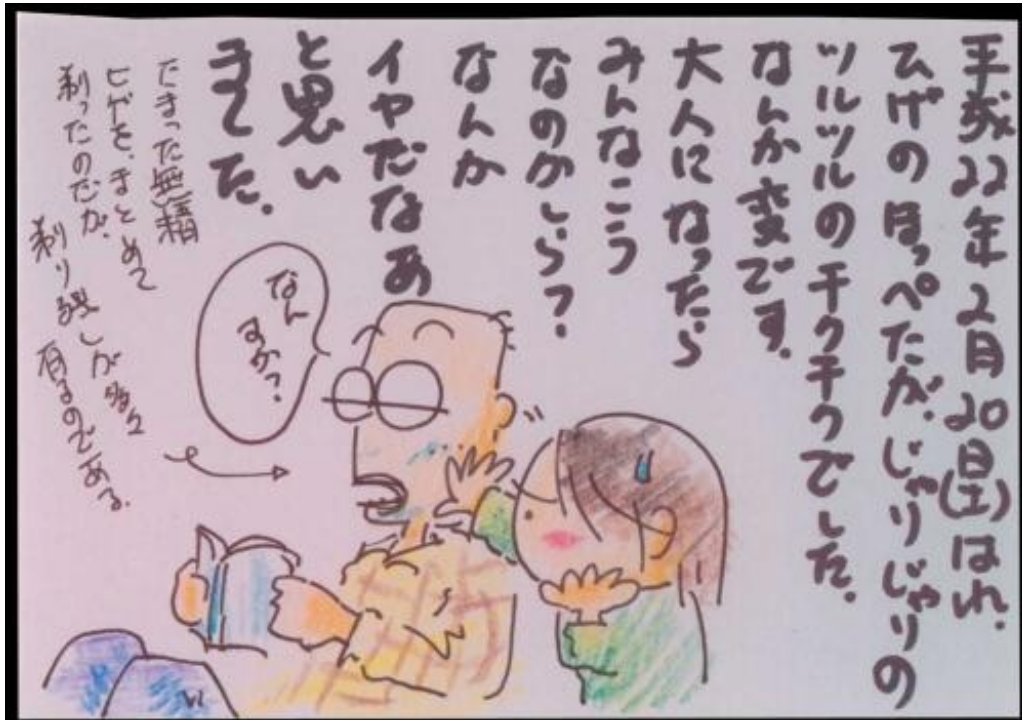 平成22年2月20日(土)はれ.
ひげのほっぺたが、じゃりじゃりの
ツルツルのチクチクでした.
なんか変です.
大人になったら
みんなこう
なのかしら?
なんか
イヤだなあ
と思い
ました.
たまった無精
ヒゲを、まとめて
剃ったのだが、
剃り残しが多々
有るのである.
なん
すか?